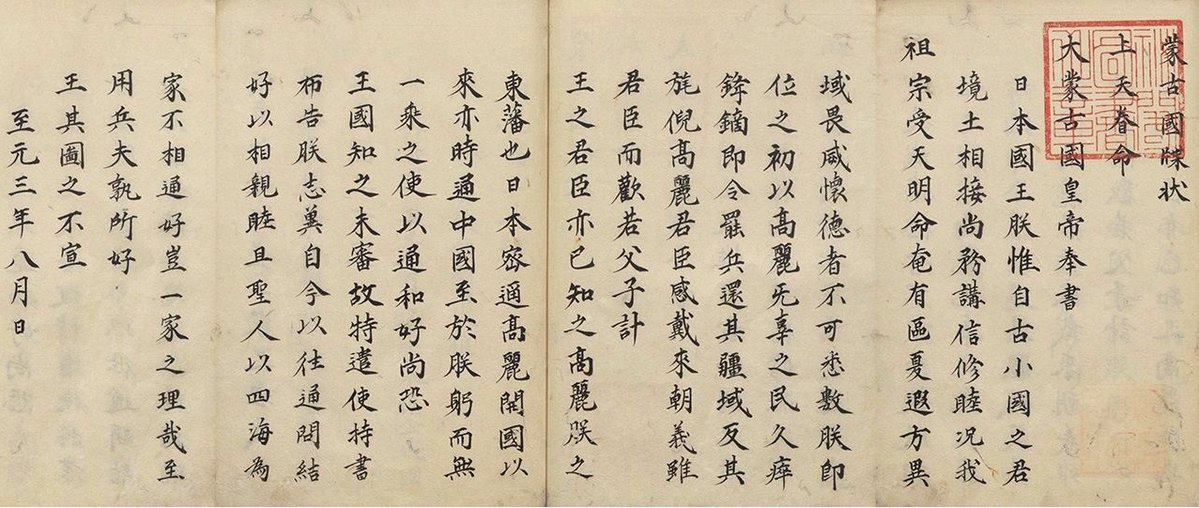 蒙古國牒状
上天眷命
大蒙古國皇帝奉書
日本國王朕惟自古小國之君
境土相接尚務講信修睦况我
祖宗受天明命奄有區夏遐方異
域畏威懷德者不可悉數朕即
位之初以高麗无辜之民久瘁
鋒鏑即令罷兵還其疆域反其
旄倪高麗君臣感戴來朝義雖
君臣而歡若父子計
王之君臣亦已知之高麗朕之
東藩也日本密通高麗開國以
來亦時通中國至於朕躬而無
一乘之使以通和好尚恐
王國知之未審故特遣使持書
布告朕志冀自今以往通問結
好以相親睦且聖人以四海為
家不相通好豈一家之理哉至
用兵夫孰所好
王其圖之不宣
至元三年八月日